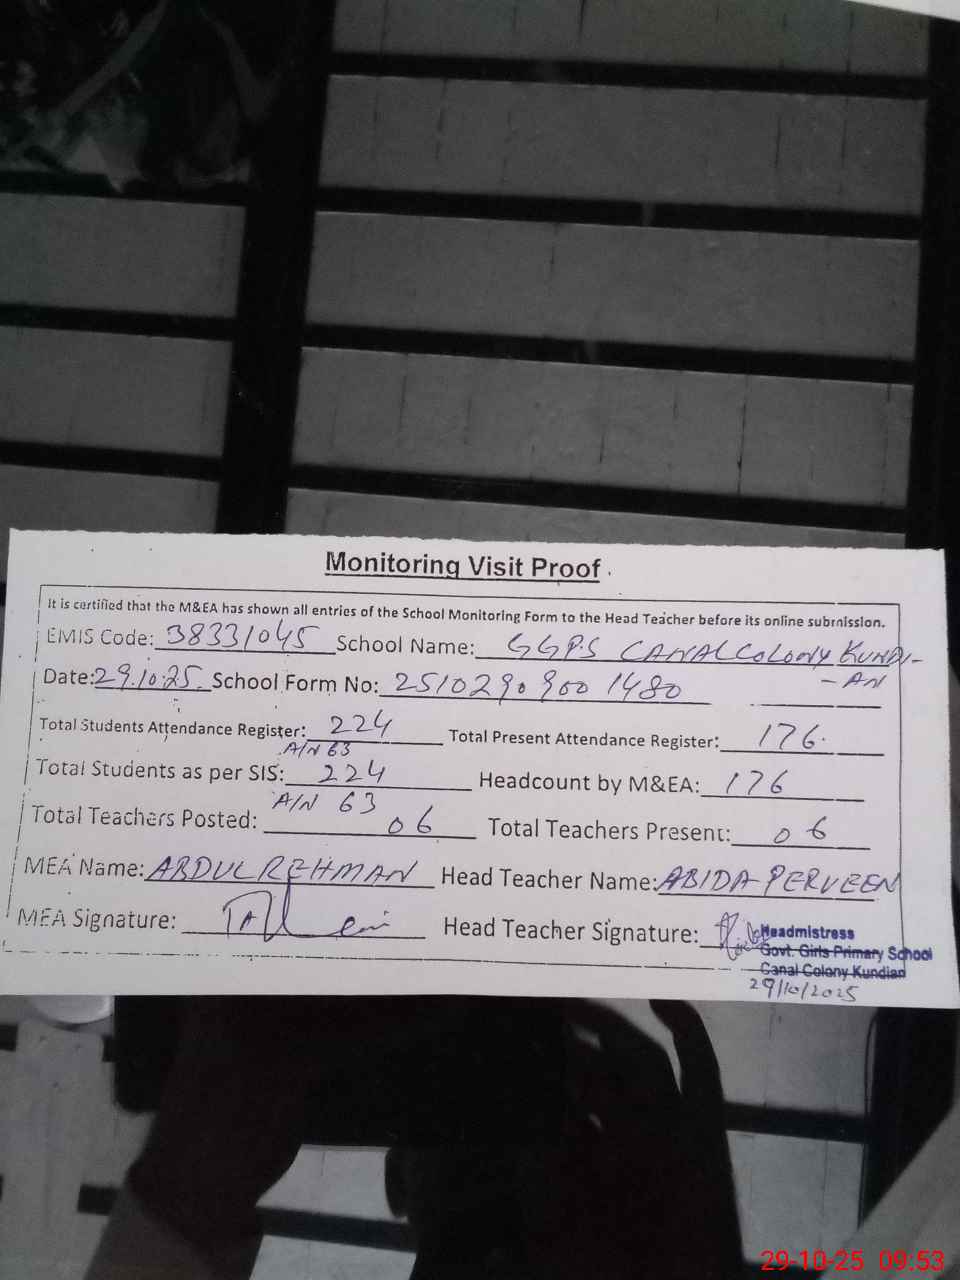 Monitoring Visit Proof
It is certified that the M&EA has shown all entries of the School Monitoring Form to the Head Teacher before its online submission.
EMIS Code: 38331045 School Name: GGPS CANAL COLONY KUNDI-
-AN
Date: 29.10.25 School Form No: 25102909001480
Total Students Attendance Register: 224 Total Present Attendance Register: 176
A/N 63
Total Students as per SIS: 224 Headcount by M&EA: 176
A/N 63
Total Teachers Posted: 06 Total Teachers Present: 06
MEA Name: ABDUL REHMAN Head Teacher Name: ABIDA PERVEEN
MEA Signature: Head Teacher Signature:
Headmistress
Govt. Girls Primary School
Canal Colony Kundian
29/10/2025
29-10-25 09:53